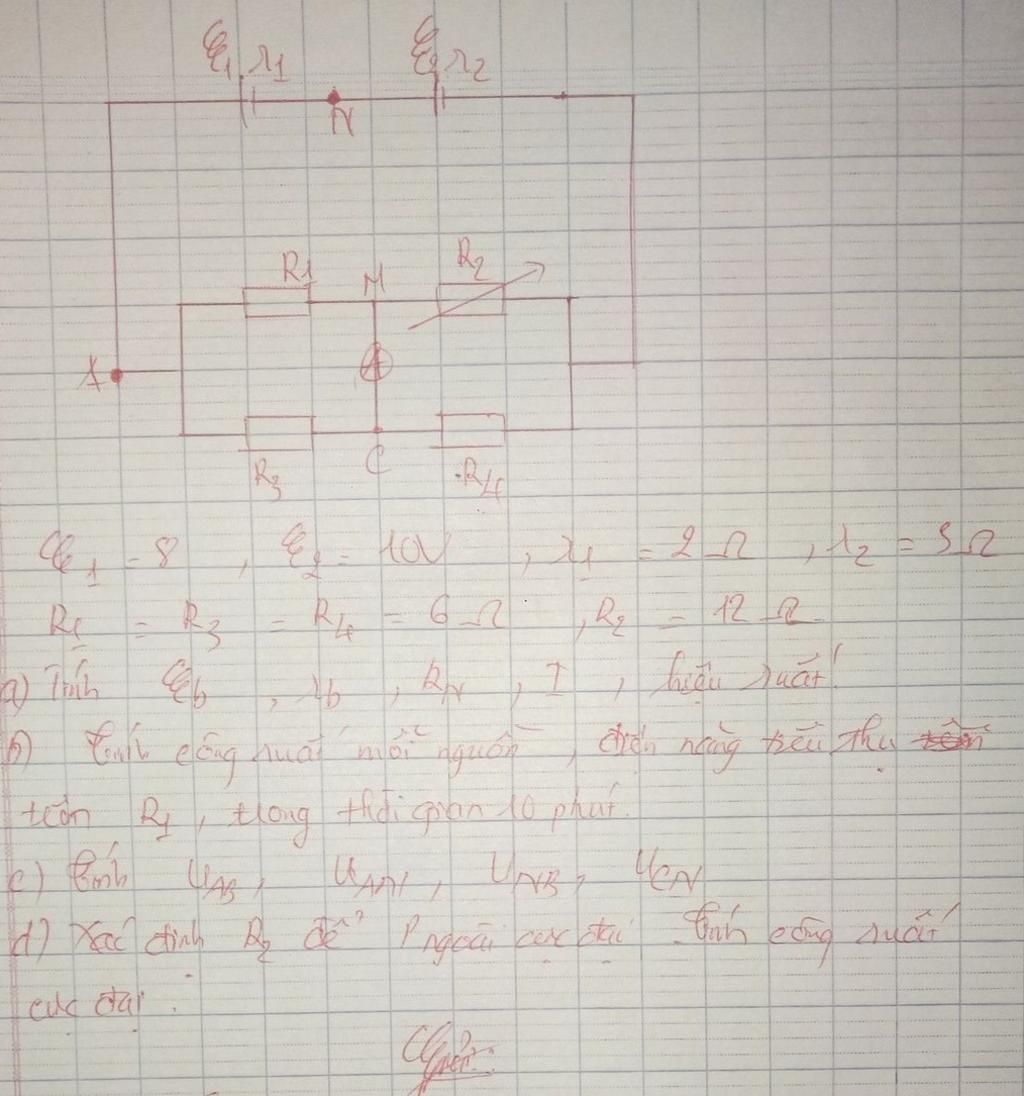 ℰ1, r1 ℰ2, r2
N
R1 M R2
A A
R3 C R4
ℰ1 = 8 , ℰ2 = 10V , r1 = 2 Ω , r2 = 3 Ω
R1 = R3 = R4 = 6 Ω , R2 = 12 Ω
a) Tính ℰb , rb , RN , I , hiệu suất!
b) tính công suất mỗi nguồn , điện năng tiêu thụ
trên R1 , trong thời gian 10 phút.
c) tính UAB , UAM , UNB , UCN
d) Xác định R2 để P ngoài cực đại . Tính công suất
cực đại .
Giải: